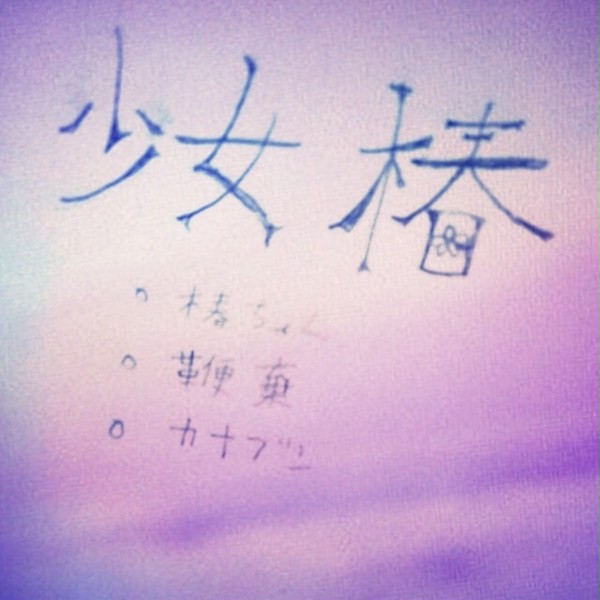 少女椿
椿ちゃん
鞭棄
カナブン